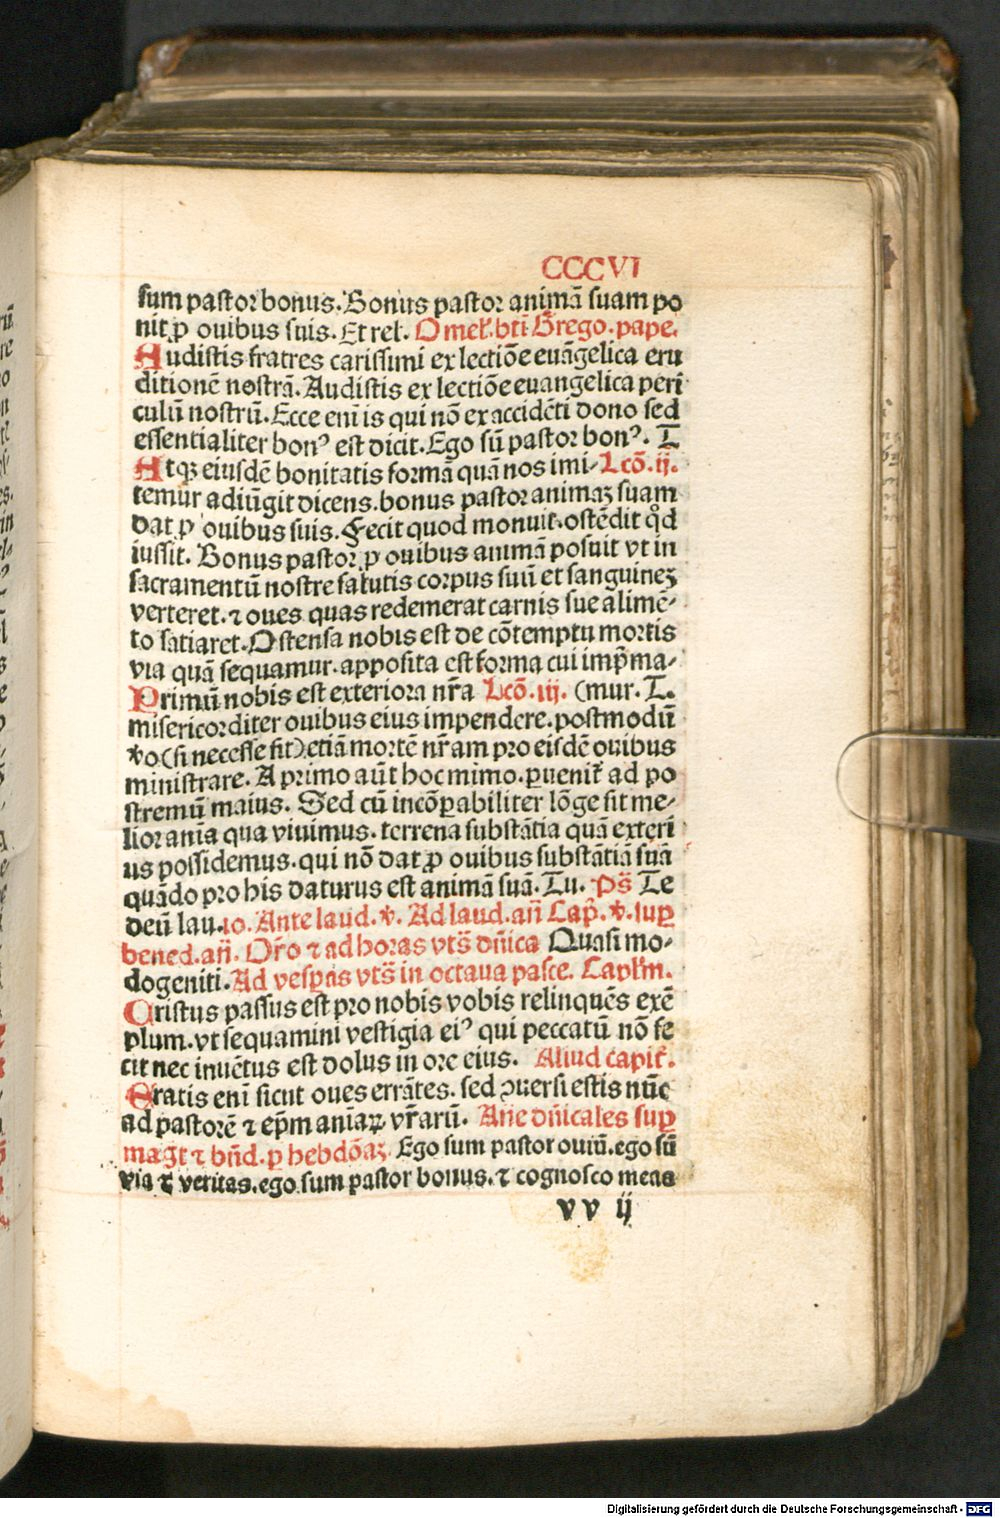 CCCVI
sum pastor bonus. Bonus pastor animā suam po
nit ꝓ ouibus suis. Et rel̄. Omel̄. bti Grego. pape.
Audistis fratres carissimi ex lectiōe euāgelica eru
ditionē nostrā. Audistis ex lectiōe euangelica peri
culū nostrū. Ecce eni is qui nō ex accidēti dono sed
essentialiter bonꝰ est dicit. Ego sū pastor bonꝰ. T
Atqꝫ eiusdē bonitatis formā quā nos imi- Lcō. ij.
temur adiūgit dicens. bonus pastor animaꝫ suam
dat ꝓ ouibus suis. Fecit quod monuit. ostēdit qd̊
iussit. Bonus pastor ꝓ ouibus animā posuit vt in
sacramentū nostre salutis corpus suū et sanguineꝫ
verteret. ⁊ oues quas redemerat carnis sue alimē-
to satiaret. Ostensa nobis est de cōtemptu mortis
via quā sequamur. apposita est forma cui imp̄ma-
Primū nobis est exteriora nr̄a Lcō. iij. (mur. T.
misericorditer ouibus eius impendere. postmodū
v̄o (si necesse sit) etiā mortē nr̄am pro eisdē ouibus
ministrare. A primo aūt hoc mimo. ꝑuenit̄ ad po
stremū maius. Sed cū incōꝑabiliter lōge sit me-
lior ania qua viuimus. terrena substātia quā exteri
us possidemus. qui nō dat ꝓ ouibus substātiā suā
quādo pro his daturus est animā suā. Tu. Ps̄ Te
deū lau. io. Ante laud. v̄. Ad laud. añ Cap̄. v̄. suꝑ
bened. añ. Or̄o ⁊ ad horas vts̄ dn̄ica Quasi mo-
dogeniti. Ad vesꝑas vts̄ in octaua pasce. Capl̄m.
Cristus passus est pro nobis vobis relinquēs exē
plum. vt sequamini vestigia eiꝰ qui peccatū nō fe
cit nec inuētus est dolus in ore eius. Aliud capit̄.
Eratis eni sicut oues errātes. sed ꝯuersi estis nūc
ad pastorē ⁊ ep̄m aniaꝝ vr̄arū. Añe dn̄icales suꝑ
magt̄ ⁊ bn̄d. ꝑ hebdōaꝫ Ego sum pastor ouiū. ego sū
via ⁊ veritas. ego sum pastor bonus. ⁊ cognosco meas
vv ij
Digitalisierung gefördert durch die Deutsche Forschungsgemeinschaft - DFG